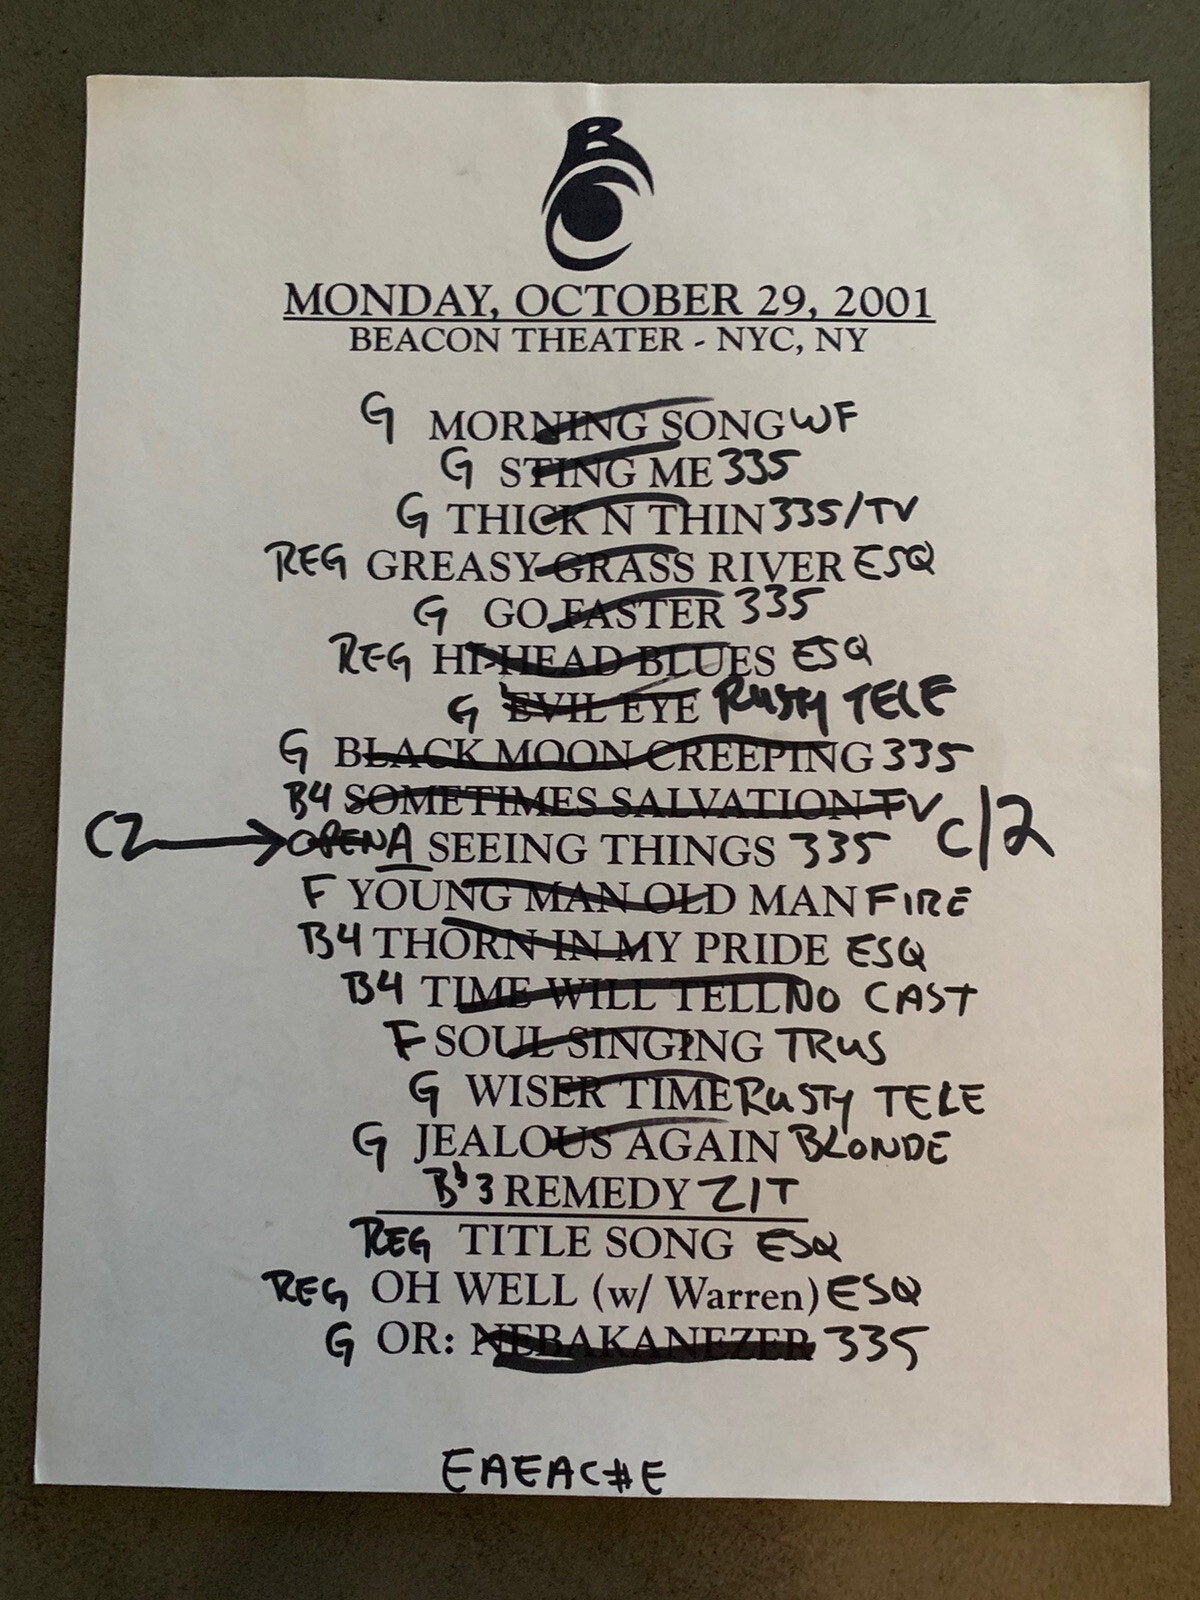 BC
MONDAY, OCTOBER 29, 2001
BEACON THEATER - NYC, NY
G MORNING SONG WF
G STING ME 335
G THICK N THIN 335/TV
REG GREASY GRASS RIVER ESQ
G GO FASTER 335
REG HI-HEAD BLUES ESQ
G EVIL EYE RUSTY TELE
G BLACK MOON CREEPING 335
B4 SOMETIMES SALVATION TV
C2 OPEN A SEEING THINGS 335 C/2
F YOUNG MAN OLD MAN FIRE
B4 THORN IN MY PRIDE ESQ
B4 TIME WILL TELL NO CAST
F SOUL SINGING TRUS
G WISER TIME RUSTY TELE
G JEALOUS AGAIN BLONDE
Bb3 REMEDY ZIT
REG TITLE SONG ESQ
REG OH WELL (w/ Warren) ESQ
G OR: NEBAKANEZER 335
EAEAC#E